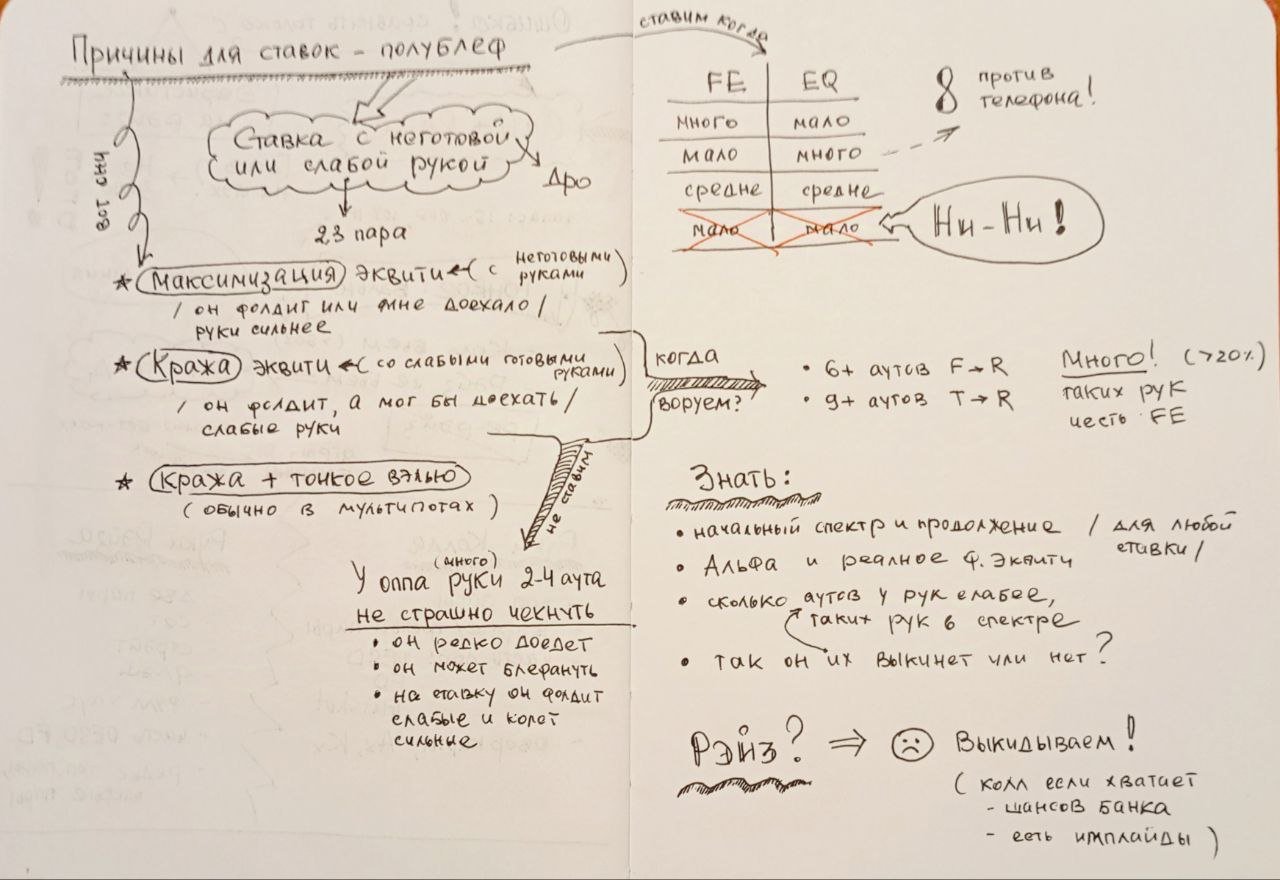 Причины для ставок - полублеф
Ставка с неготовой
или слабой рукой
Дро
23 пара
вот они
★ Максимизация эквити ← ( с неготовыми
руками )
/ он фолдит или мне доехало /
руки сильнее
★ Кража эквити ← ( со слабыми готовыми
руками )
/ он фолдит, а мог бы доехать /
слабые руки
★ Кража + тонкое вэлью
( обычно в мультипотах )
не ставим
У оппа (много) руки 2-4 аута
не страшно чекнуть
• он редко доедет
• он может блефануть
• на ставку он фолдит
слабые и колет
сильные
ставим когда
FE EQ
много мало
мало много
средне средне
мало мало
против
телефона!
Ни-Ни!
когда
воруем?
• 6+ аутов F→R
• 9+ аутов T→R
Много! (>20%)
таких рук
и есть FE
Знать:
• начальный спектр и продолжение / для любой
ставки /
• Альфа и реальное Ф. Эквити
• сколько аутов у рук слабее,
таких рук в спектре
• так он их выкинет или нет?
Рэйз? ⇒ ☹ Выкидываем!
( колл если хватает
- шансов банка
- есть имплайды )